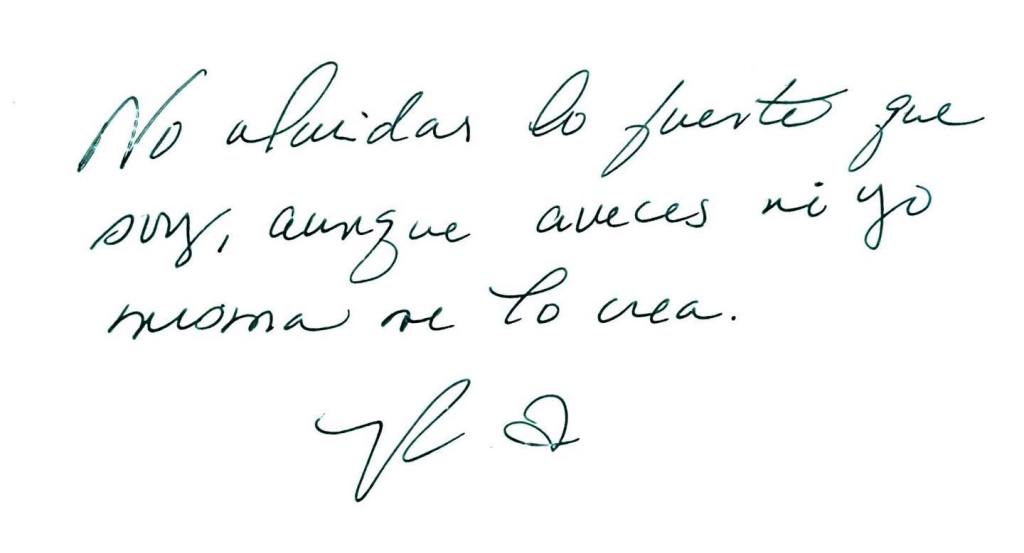 No olvidar lo fuerte que
soy, aunque aveces ni yo
misma me lo crea.